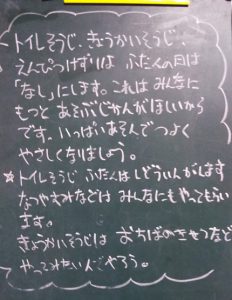 トイレそうじ、きょうかいそうじ、
えんぴつけずりは ふだんの日は
「なし」にします。これは みんなに
もっと あそぶじかんが ほしいから
です。いっぱいあそんで つよく
やさしくなりましょう。
★トイレそうじ ふだんは しどういんがします
なつやすみなどは みんなにもやってもらい
ます。
きょうかいそうじは おちばのきせつなど
やってみたい人でやろう。